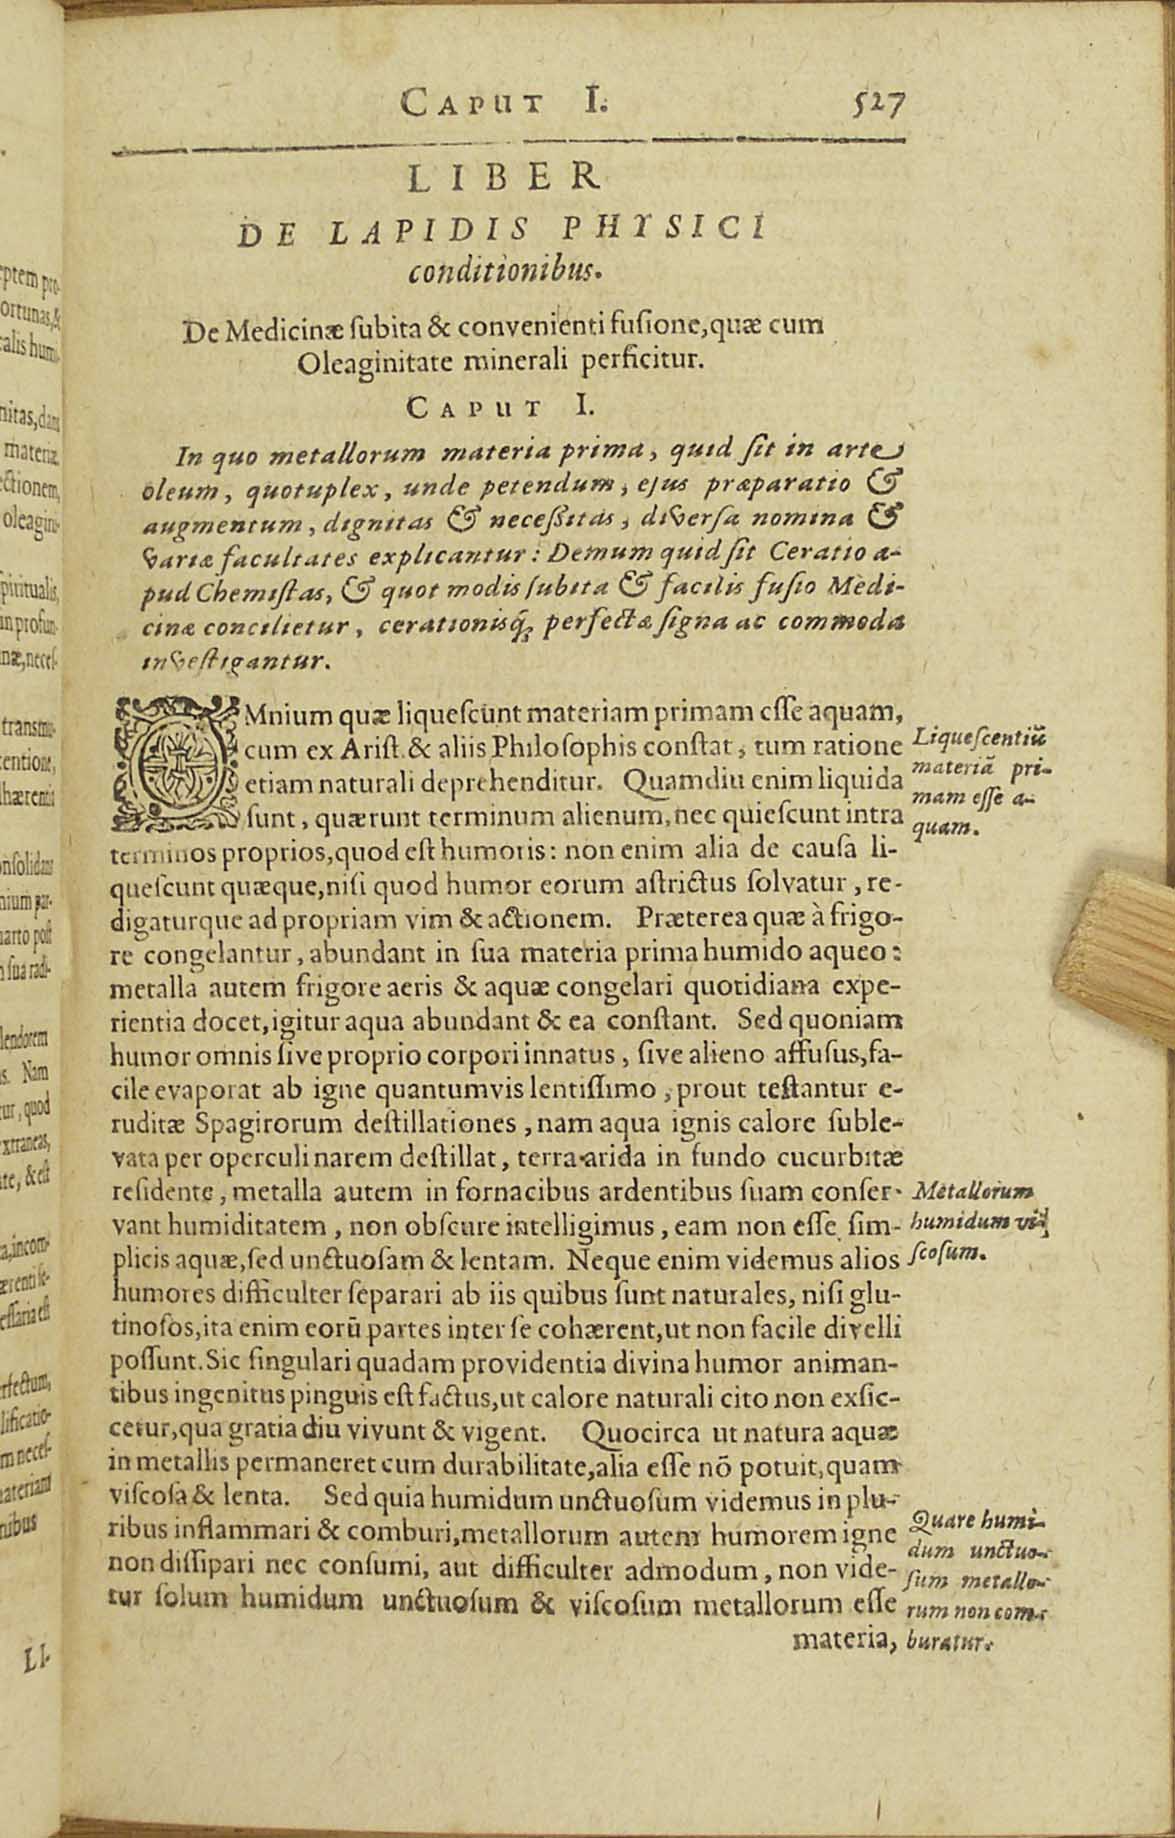 CAPUT I. 527
LIBER
DE LAPIDIS PHYSICI
conditionibus.
De Medicinæ ſubita & convenienti fuſione, quæ cum
Oleaginitate minerali perficitur.
CAPUT I.
In quo metallorum materia prima, quid ſit in arte
oleum, quotuplex, unde petendum, ejus præparatio &
augmentum, dignitas & neceſſitas, diverſa nomina &
variæ facultates explicantur: Demum quid ſit Ceratio a-
pud Chemiſtas, & quot modis ſubita & facilis fuſio Medi-
cinæ concilietur, cerationisq; perfectæ ſigna ac commoda
inveſtigantur.
OMnium quæ liqueſcunt materiam primam eſſe aquam,
cum ex Ariſt. & aliis Philoſophis conſtat, tum ratione
etiam naturali deprehenditur. Quamdiu enim liquida
ſunt, quærunt terminum alienum, nec quieſcunt intra
terminos proprios, quod eſt humoris: non enim alia de cauſa li-
queſcunt quæque, niſi quod humor eorum aſtrictus ſolvatur, re-
digaturque ad propriam vim & actionem. Præterea quæ à frigo-
re congelantur, abundant in ſua materia prima humido aqueo:
metalla autem frigore aeris & aquæ congelari quotidiana expe-
rientia docet, igitur aqua abundant & ea conſtant. Sed quoniam
humor omnis ſive proprio corpori innatus, ſive alieno affuſus, fa-
cile evaporat ab igne quantumvis lentiſſimo, prout teſtantur e-
ruditæ Spagirorum deſtillationes, nam aqua ignis calore ſuble-
vata per operculi narem deſtillat, terra arida in fundo cucurbitæ
reſidente, metalla autem in fornacibus ardentibus ſuam conſer-
vant humiditatem, non obſcure intelligimus, eam non eſſe ſim-
plicis aquæ, ſed unctuoſam & lentam. Neque enim videmus alios
humores difficulter ſeparari ab iis quibus ſunt naturales, niſi glu-
tinoſos, ita enim eorū partes inter ſe cohærent, ut non facile divelli
poſſunt. Sic ſingulari quadam providentia divina humor animan-
tibus ingenitus pinguis eſt factus, ut calore naturali cito non exſic-
cetur, qua gratia diu vivunt & vigent. Quocirca ut natura aquæ
in metallis permaneret cum durabilitate, alia eſſe nō potuit, quam
viſcoſa & lenta. Sed quia humidum unctuoſum videmus in plu-
ribus inflammari & comburi, metallorum autem humorem igne
non diſſipari nec conſumi, aut difficulter admodum, non vide-
tur ſolum humidum unctuoſum & viſcoſum metallorum eſſe
materia,
Liqueſcentiū
materiā pri-
mam eſſe a-
quam.
Metallorum
humidum vi-
ſcoſum.
Quare humi-
dum unctuo-
ſum metallo-
rum non com-
buratur.
ptem pro-
ortunas, &
nitas, dans
materiæ
ectionem,
oleagini-
piritualis,
in profun-
næ, neceſ-
hærentia
onſolidans
nium par-
n ſua radi-
lendorem
s. Nam
tur, quod
xtraneas,
te, & eſt
a, incom-
eſſaria eſt
rfectum,
lificatio-
m neceſ-
nibus
LI-